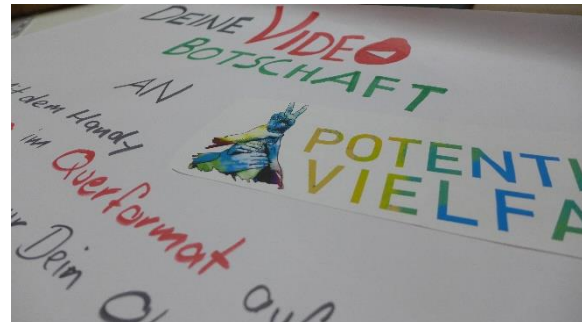 DEINE VIDEO
BOTSCHAFT
AN
POTENTI
VIELFA
dem Handy
im Querformat auf
Dein